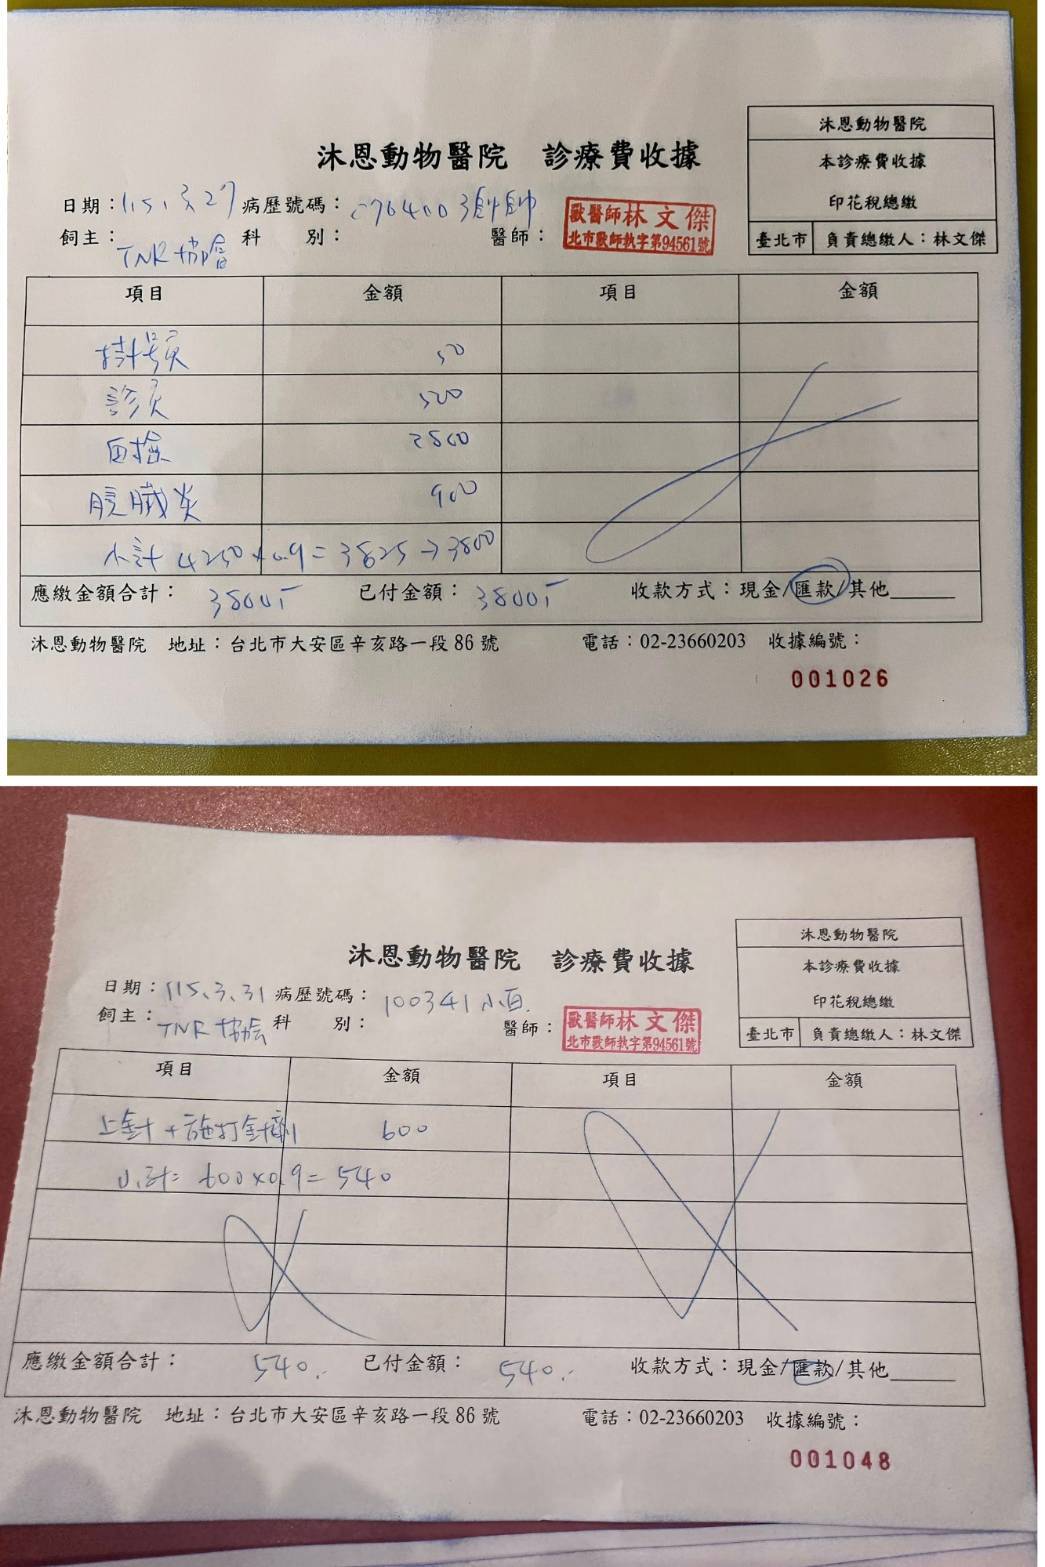 沐恩動物醫院 診療費收據
沐恩動物醫院
本診療費收據
印花稅總繳
臺北市 負責總繳人：林文傑
日期：115.3.27 病歷號碼：076400
飼主：TNR 協會 科 別： 醫師：
獸醫師林文傑
北市獸師執字第94561號
項目 金額 項目 金額
掛号費 50
診費 500
血檢 2800
胰臟炎 900
小計 4250×0.9=3825→3800
應繳金額合計：3800 已付金額：3800 收款方式：現金/匯款/其他
沐恩動物醫院 地址：台北市大安區辛亥路一段 86 號 電話：02-23660203 收據編號：
001026
沐恩動物醫院 診療費收據
沐恩動物醫院
本診療費收據
印花稅總繳
臺北市 負責總繳人：林文傑
日期：115.3.31 病歷號碼：100341 小白
飼主：TNR 協會 科 別： 醫師：
獸醫師林文傑
北市獸師執字第94561號
項目 金額 項目 金額
上針+施打針劑 600
小計= 600×0.9=540
應繳金額合計：540. 已付金額：540. 收款方式：現金/匯款/其他
沐恩動物醫院 地址：台北市大安區辛亥路一段 86 號 電話：02-23660203 收據編號：
001048